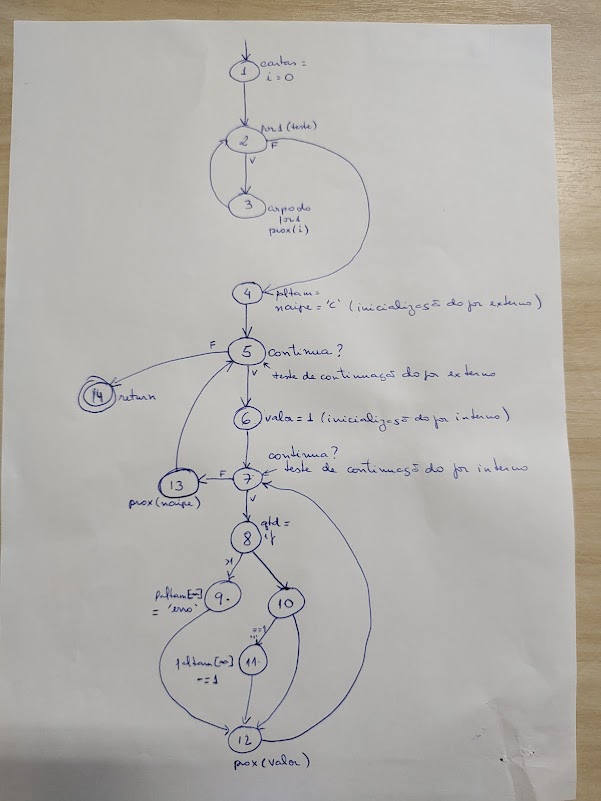 1 cartas =
i = 0
2 for 1 (teste)
F
V
3 corpo do
for 1
prox(i)
4 faltam =
naipe = 'C' (inicialização do for externo)
F 5 continua?
V teste de continuação do for externo
14 return
6 valor = 1 (inicialização do for interno)
continua?
13 F 7 teste de continuação do for interno
prox(naipe)
V
8 qtd =
if
>1
faltam[~] 9
= 'erro'
10
==1
faltam[~] 11
-=1
12
prox(valor)